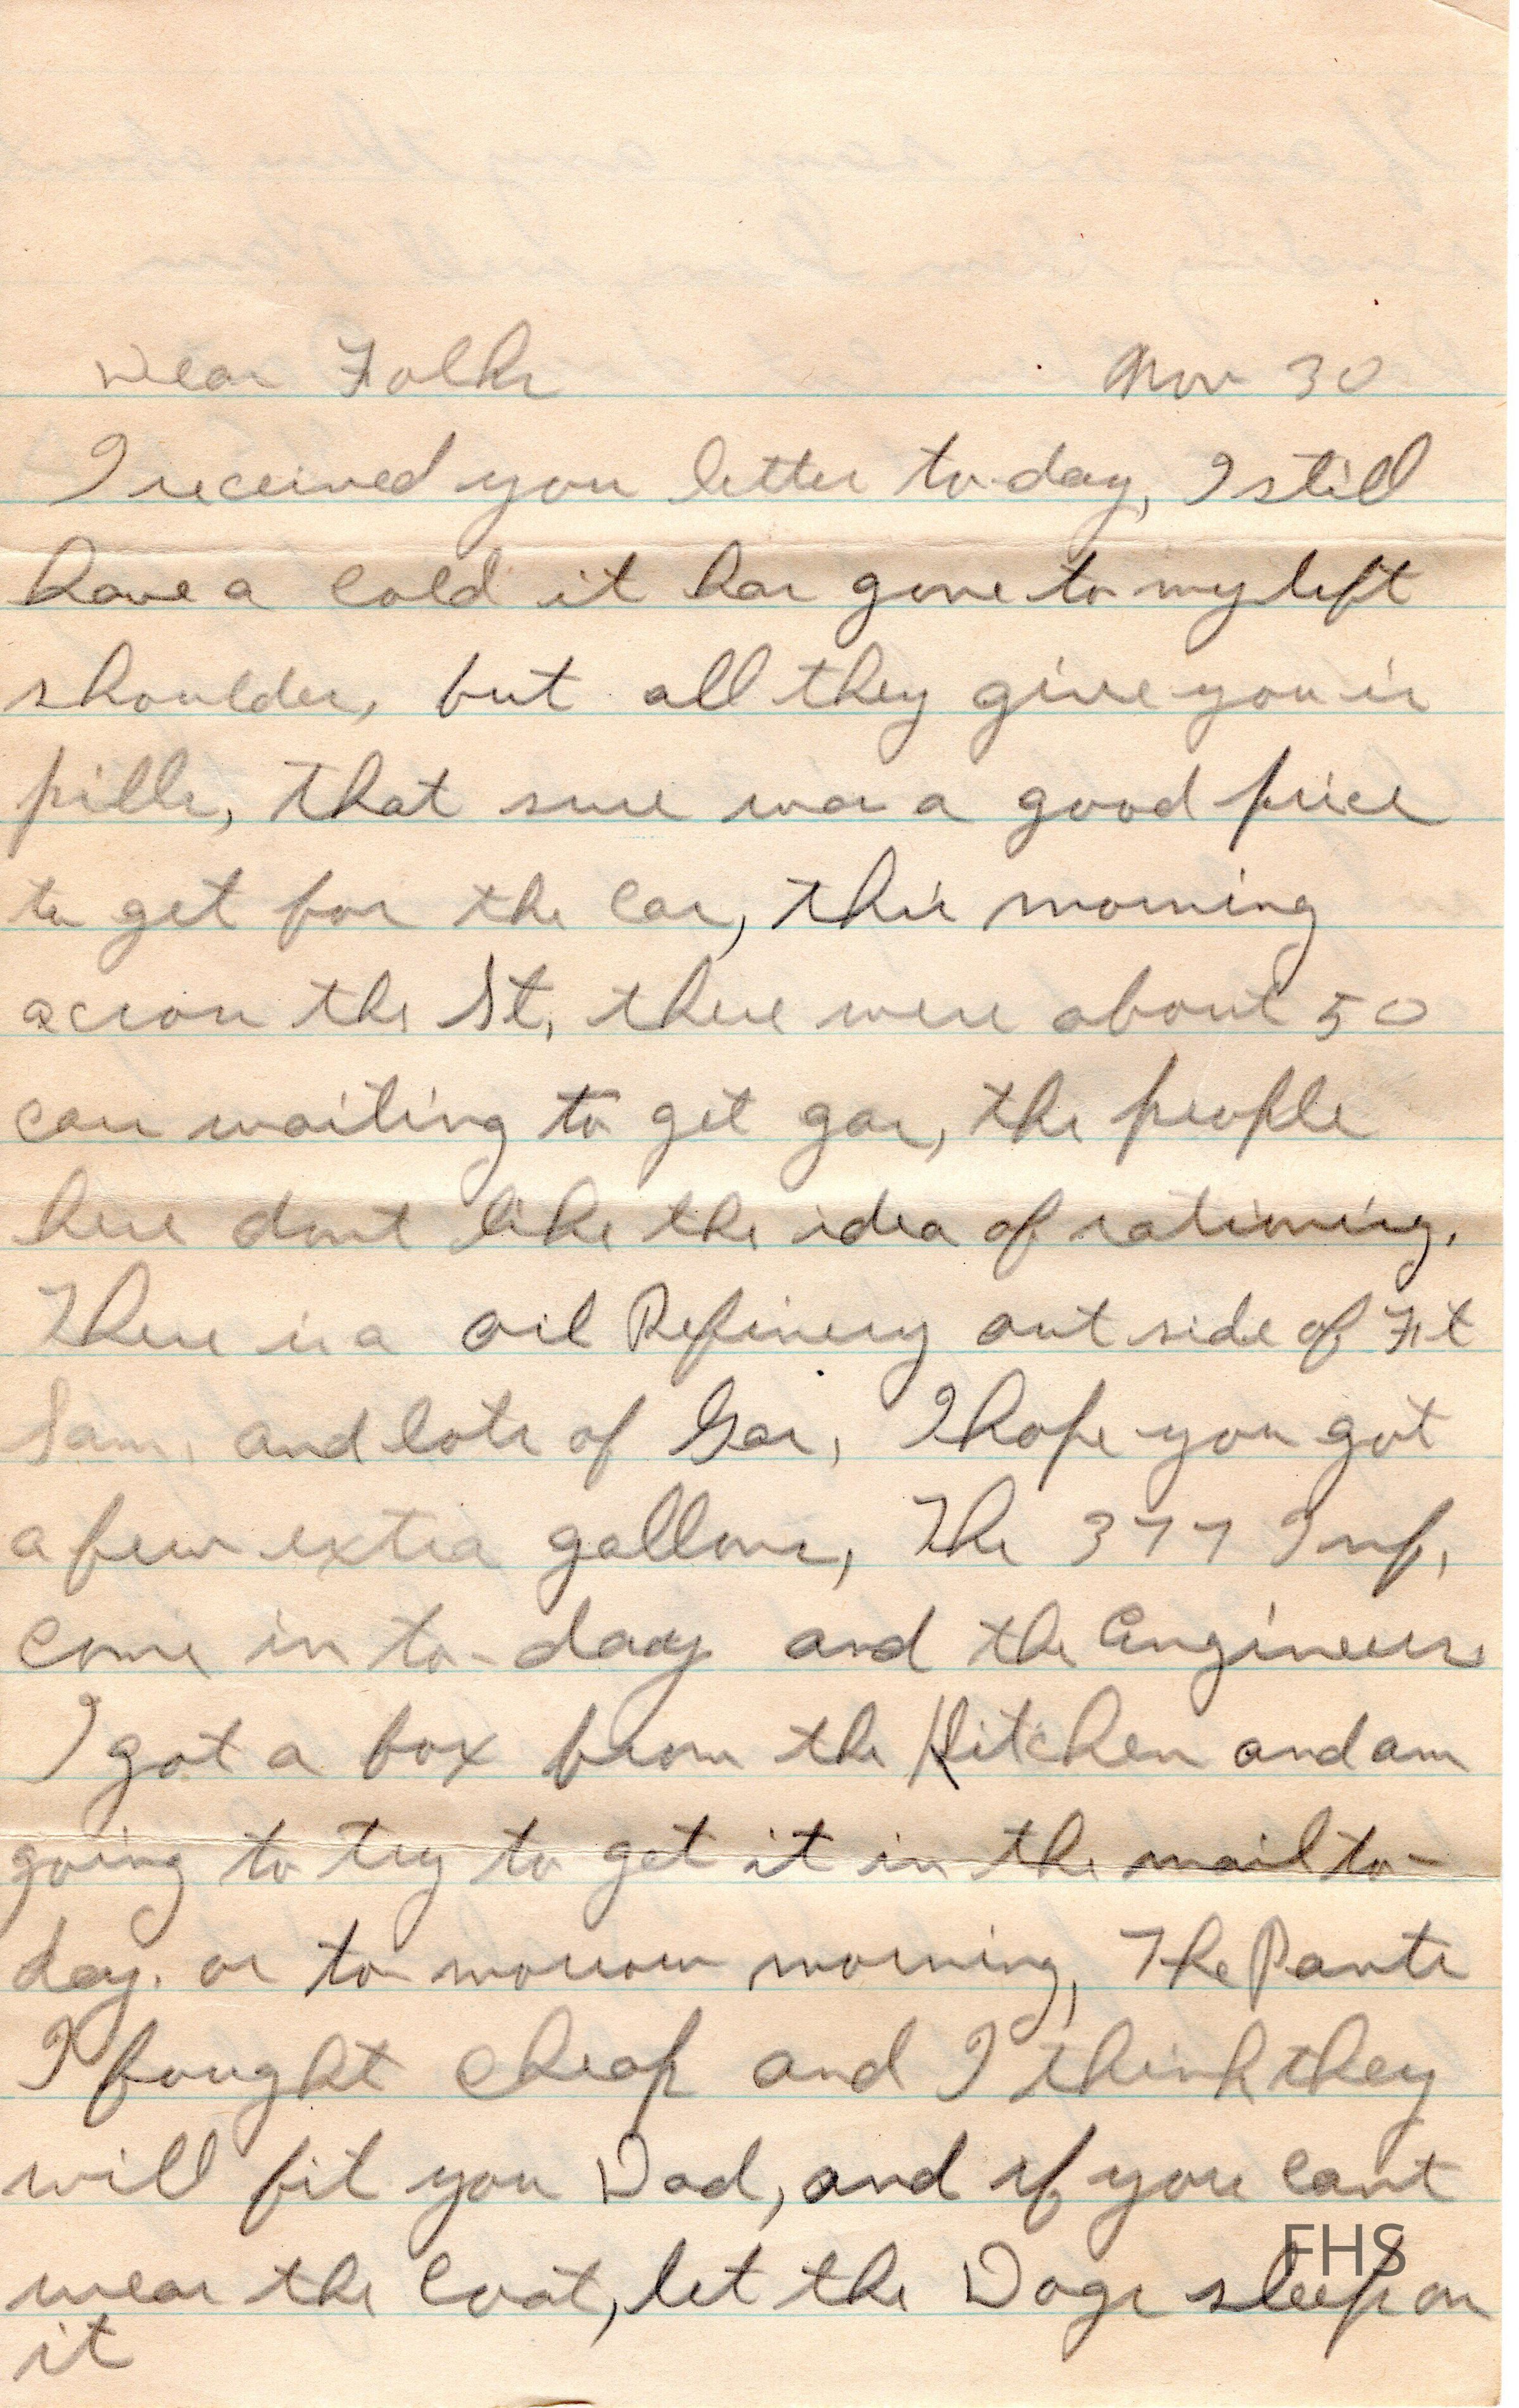 Dear Folks Nov 30
I received you letter to-day, I still
have a cold it has gone to my left
shoulder, but all they give you is
pills, that sure was a good price
to get for the car, this morning
across the St, there were about 50
cars waiting to get gas, the people
here dont like the idea of rationing.
There is a oil Refinery out side of Ft
Sam, and lots of Gas, I hope you got
a few extra gallons, The 377 Inf,
come in to-day and the Engineers
I got a box from the Kitchen and am
going to try to get it in the mail to-
day. or to morrow morning, The Pants
I bought cheap and I think they
will fit you Dad, and if you cant
wear the Coat, let the Dogs sleep on
it
FHS